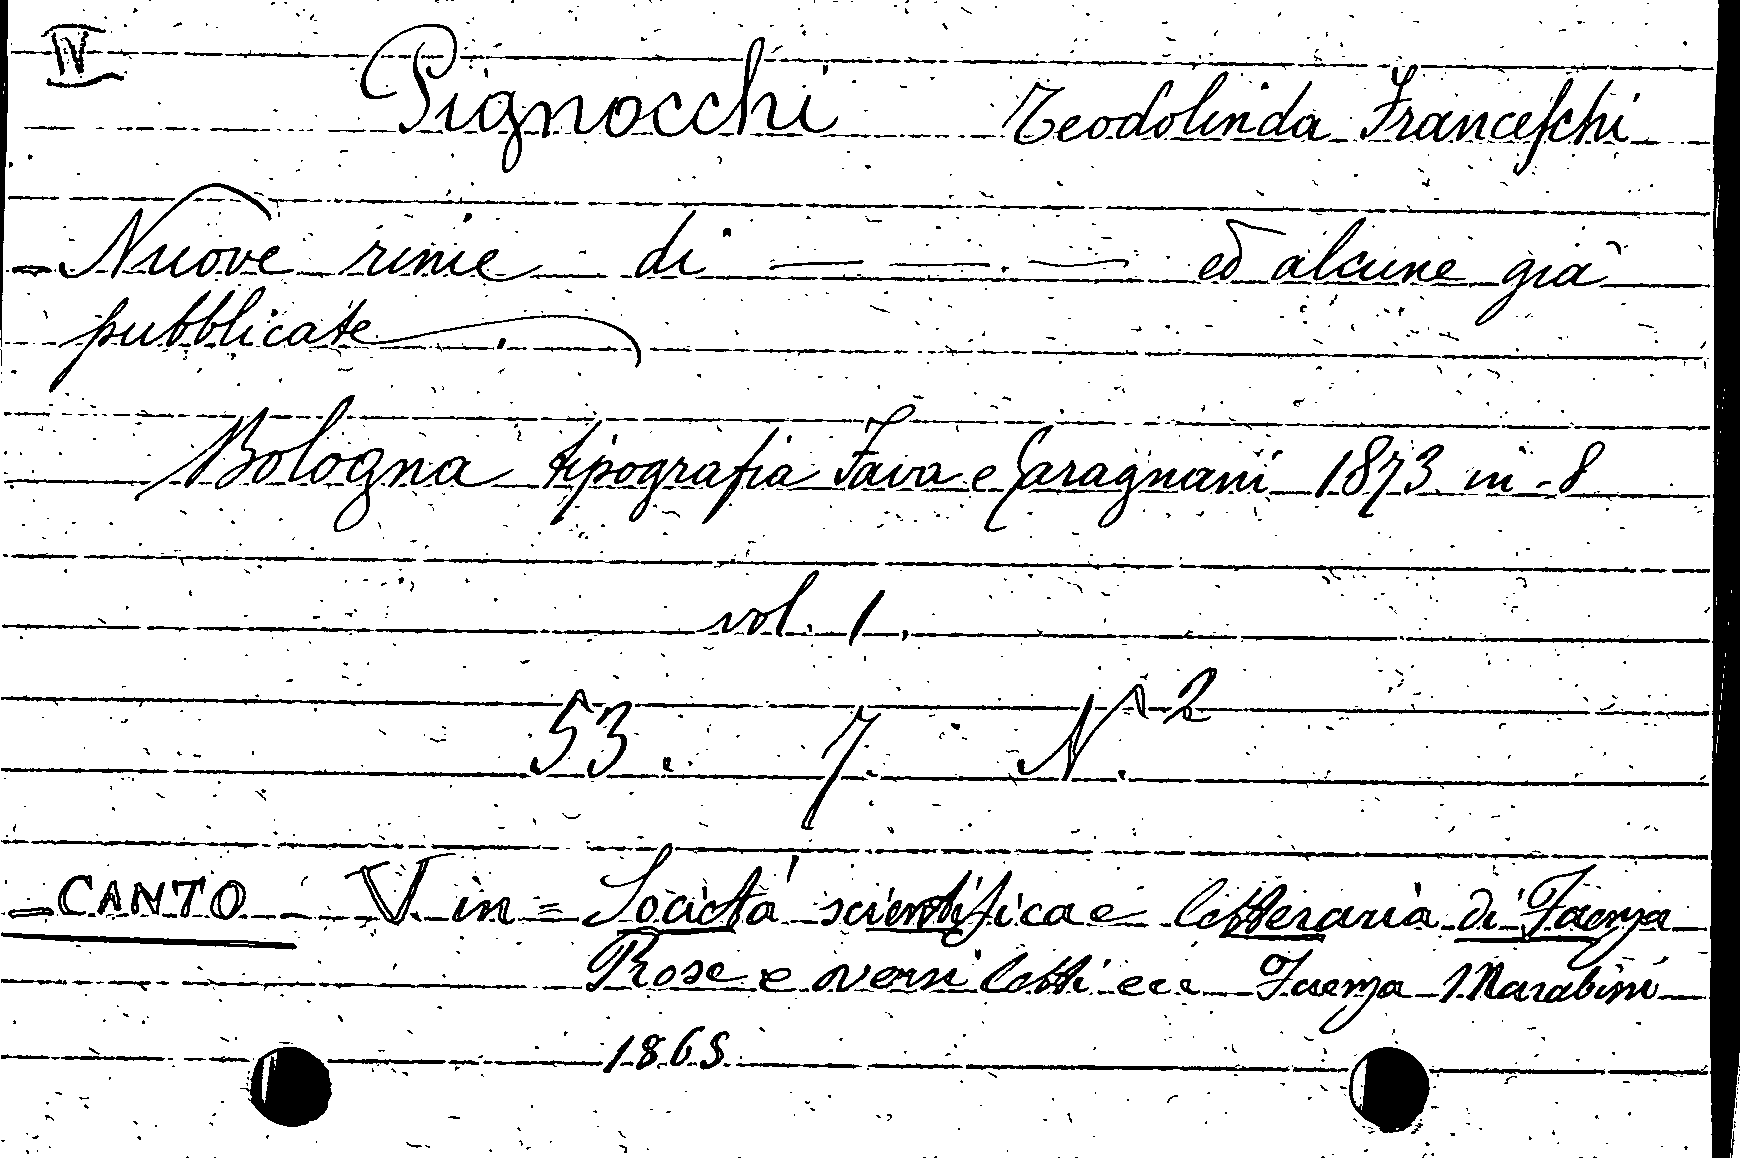 IV
Pignocchi Teodolinda Franceschi
- Nuove rime di — — . — ed alcune già
pubblicate .
Bologna tipografia Fava e Garagnani 1873 in-8
vol. 1.
53. 7. N. 2
- CANTO V. in = Società scientifica e letteraria di Faenza
Prose e versi letti ecc Faenza Marabini
1865